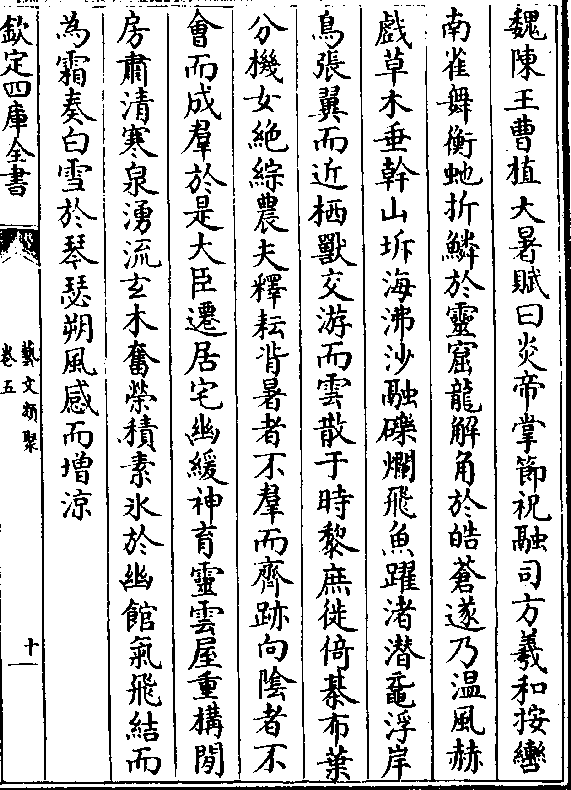 魏陳王曹植大暑賦曰炎帝掌節祝融司方羲和按轡
南雀舞衡虵折鱗於靈窟龍解角於皓蒼遂乃温風赫
戲草木垂幹山坼海沸沙融礫爛飛魚躍渚潜黿浮岸
鳥張翼而近栖獸交游而雲散于時黎庶徙倚棊布葉
分機女絶綜農夫釋耘背暑者不羣而齊跡向陰者不
會而成羣於是大臣遷居宅幽緩神育靈雲屋重構閒
房肅清寒泉湧流玄木奮榮積素氷於幽館氣飛結而
為霜奏白雪於琴瑟朔風感而增涼
欽定四庫全書
藝文類聚
卷五
十